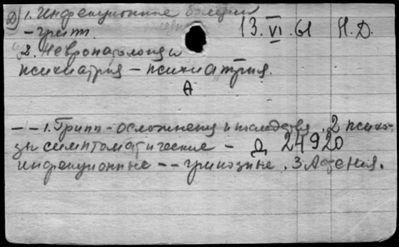 Д 1. Инфекционные болезни
- грипп. 13.VI.61 Н.Д.
2. Невропатология и
психиатрия – психиатрия.
А
-- 1. Грипп - осложнения и последствия. 2 психо-
зы симптоматические - Д 24920
инфекционные -- гриппозные. 3. Адения.